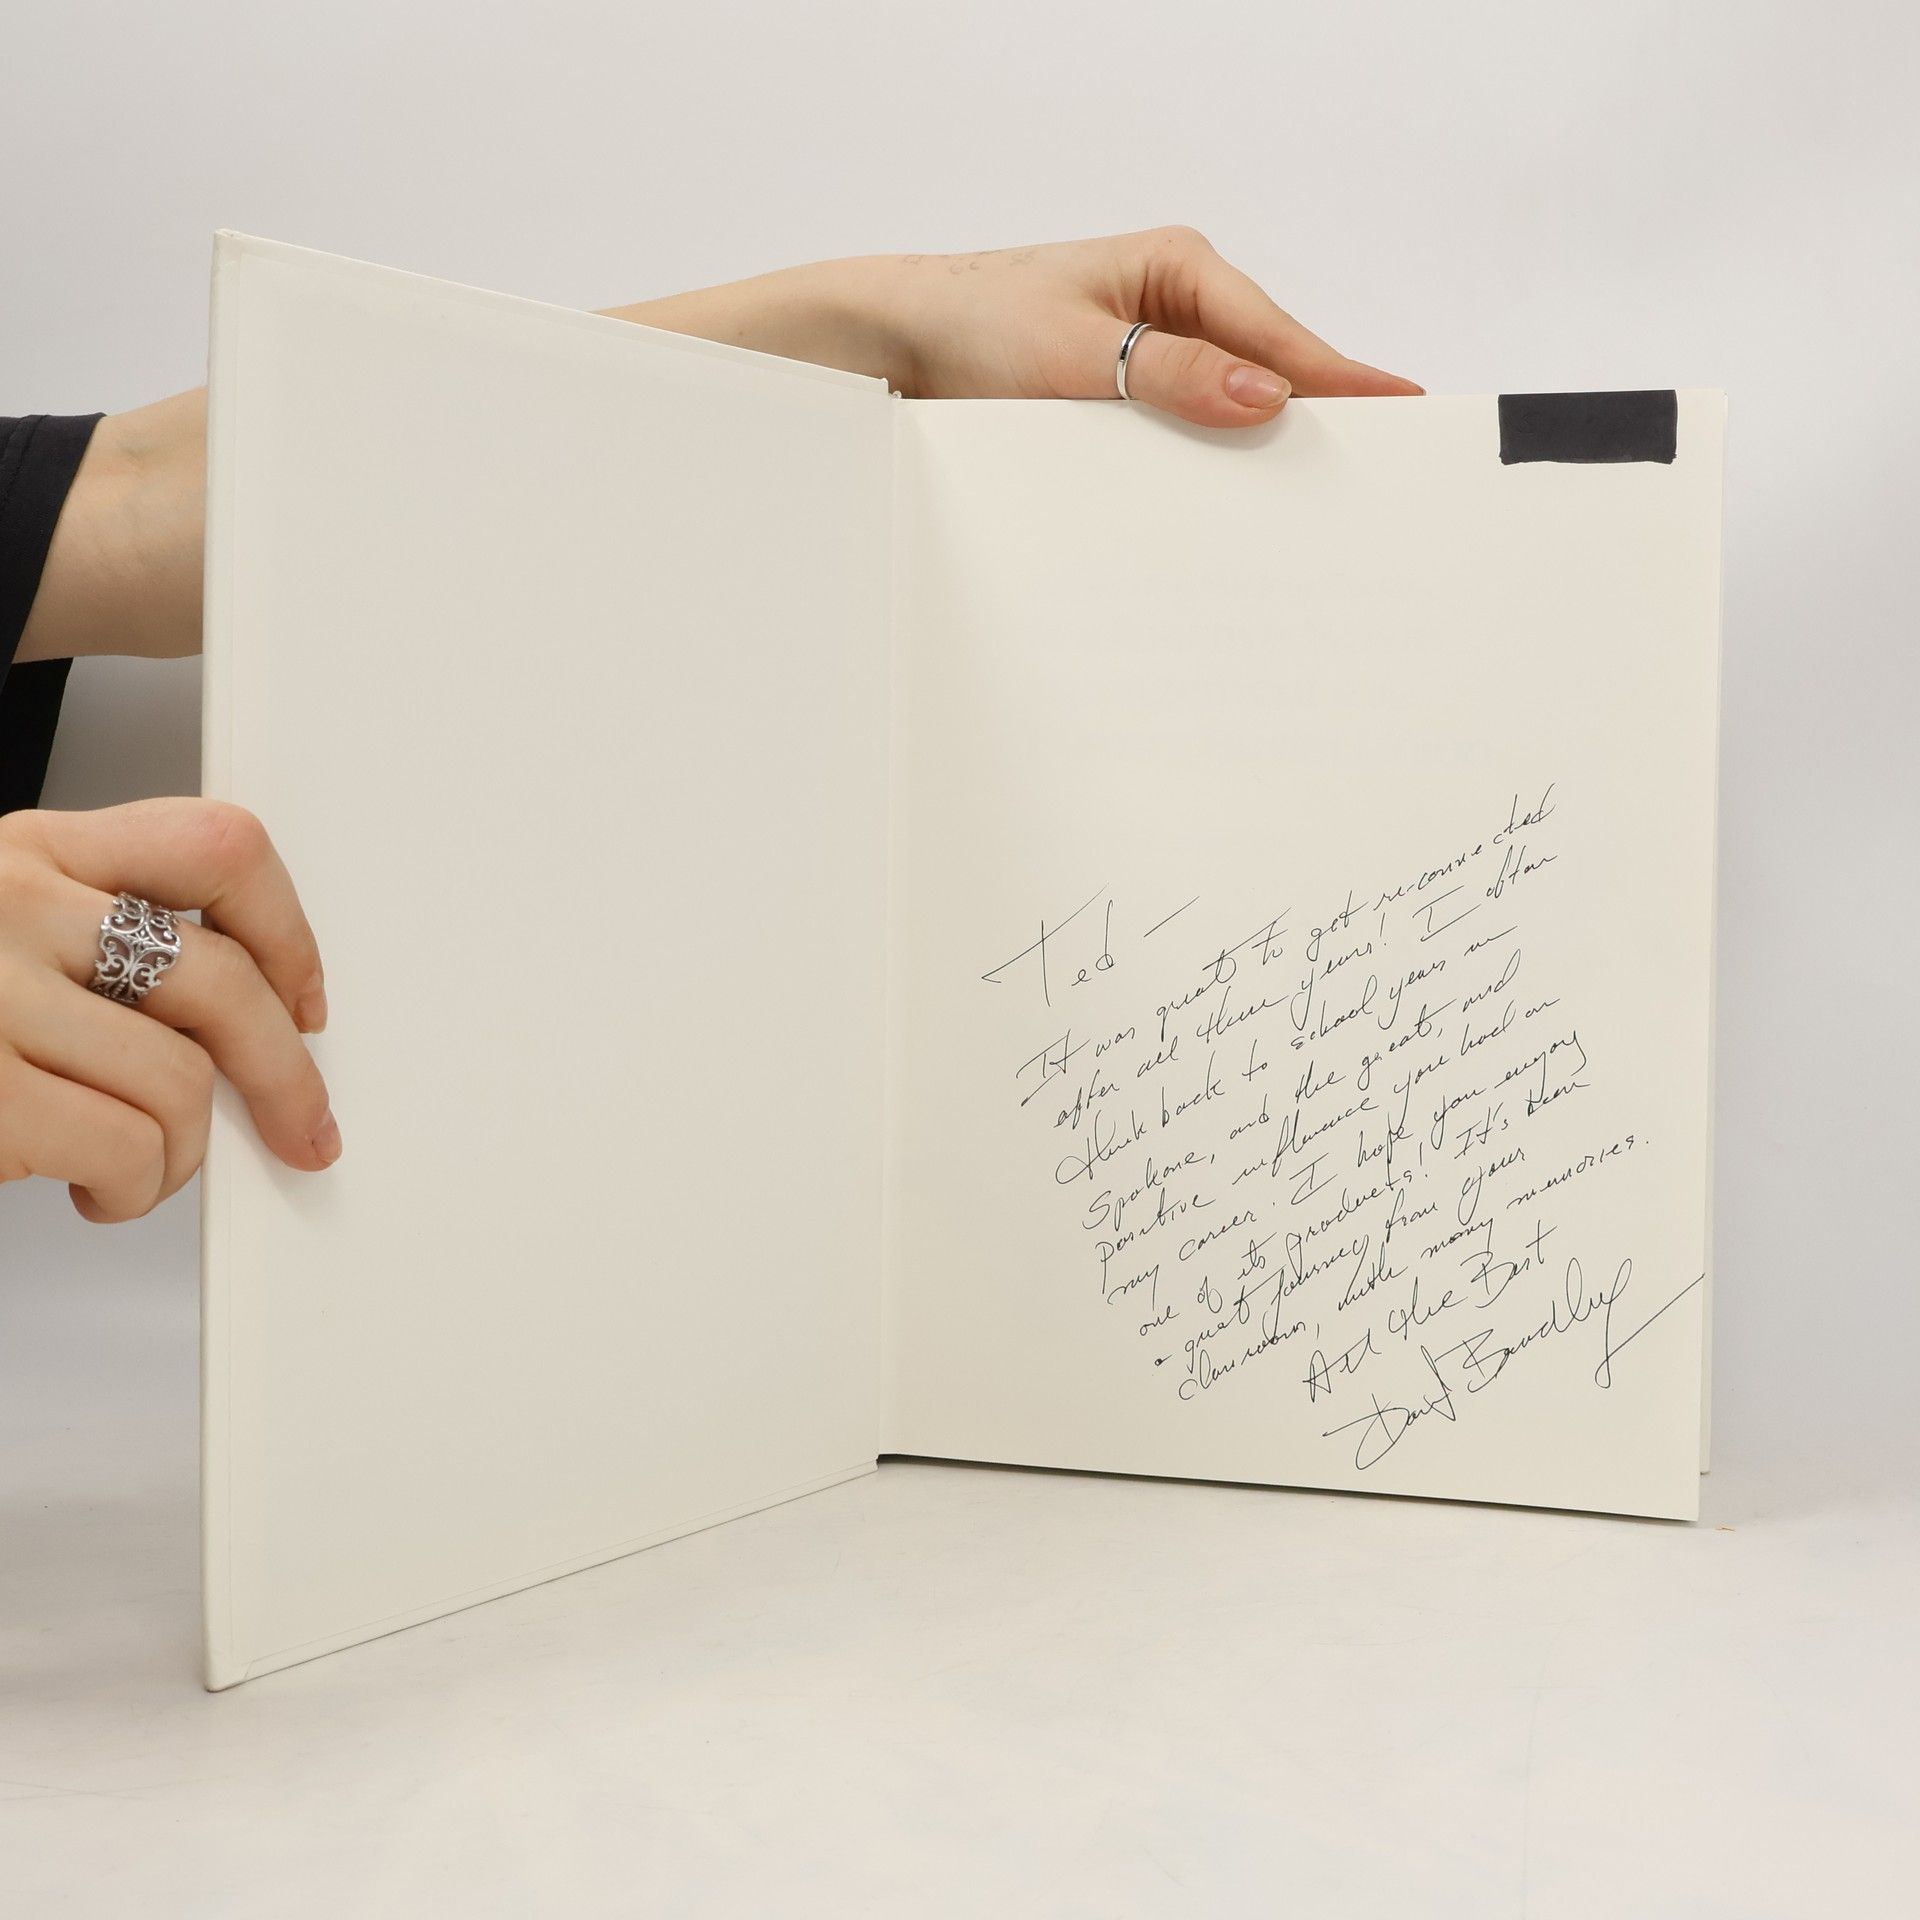 Ted —
It was great to get re-connected
after all these years! I often
think back to school years in
Spokane, and the great, and
positive influence you had on
my career. I hope you enjoy
one of its products! It's been
a great journey from your
classroom, with many memories.
All the Best
David Bradley